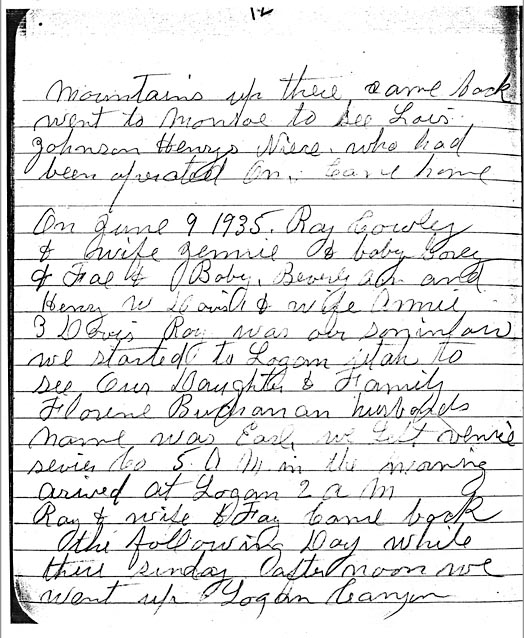 12
Mountains up there, came back
went to Monroe to see Lois
Johnson Henrys Niece. who had
been operated On. Came home
On June 9 1935. Ray Cowley
& wife Jennie & baby
& Fae & Baby. Beverly ann and
Henry W Davis & wife Annie
3 Days Ray was our soninlaw
we started to Logan utah to
see Our Daughter & Family
Florene Buchanan husbands
name was Earl, we Left
sevier Co 5. A M. in the morning
arived at Logan 2 a m
Ray & wife & Fay Came back
the following Day while
there sunday after noon we
went up Logan Canyon